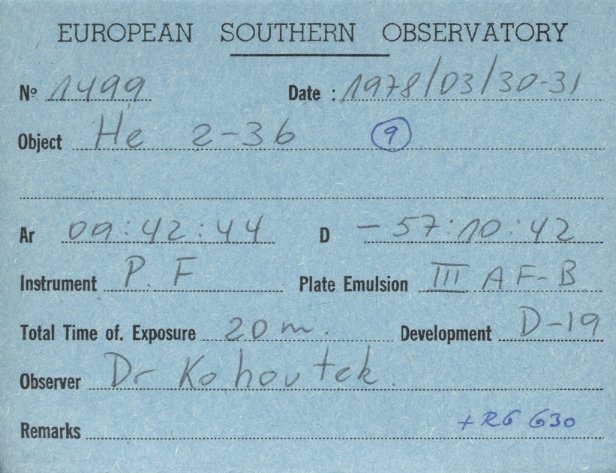 EUROPEAN SOUTHERN OBSERVATORY
Nº 1499 Date : 1978/03/30-31
Object He 2-36 9
Ar 09:42:44 D -57:10:42
Instrument P. F Plate Emulsion III AF-B
Total Time of. Exposure 20 m. Development D-19
Observer Dr Kohoutek.
Remarks +RG 630